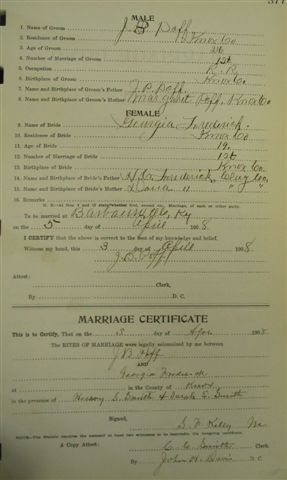 MALE
1. Name of Groom J. B. Poff
2. Residence of Groom Knox Co
3. Age of Groom
4. Number of Marriage of Groom 1st
5. Occupation R. R.
6. Birthplace of Groom Knox Co
7. Name and Birthplace of Groom's Father J. P. Poff
8. Name and Birthplace of Groom's Mother Margaret Poff. Knox Co
FEMALE
9. Name of Bride Georgia Frederick
10. Residence of Bride Knox Co
11. Age of Bride 19.
12. Number of Marriage of Bride 1st
13. Birthplace of Bride Knox Co.
14. Name and Birthplace of Bride's Father Frederick, Clay Co,
15. Name and Birthplace of Bride's Mother " " "
16. Remarks
To be married at Barbourville, Ky
on the 5 day of April 1908
I CERTIFY that the above is correct to the best of my knowledge and belief.
Witness my hand, this 3 day of April 1908
J. B. Poff
Attest:
Clerk,
By D. C.
MARRIAGE CERTIFICATE
This is to Certify, That on the 5 day of Apr 1908
The RITES OF MARRIAGE were legally solemnized by me between
J B Poff
AND
Georgia Frederick
at in the County of Knox
in the presence of S. Smith & Sarah E. Smith
Signed,
A Copy Attest: Smith
By John H. Davis D. C.